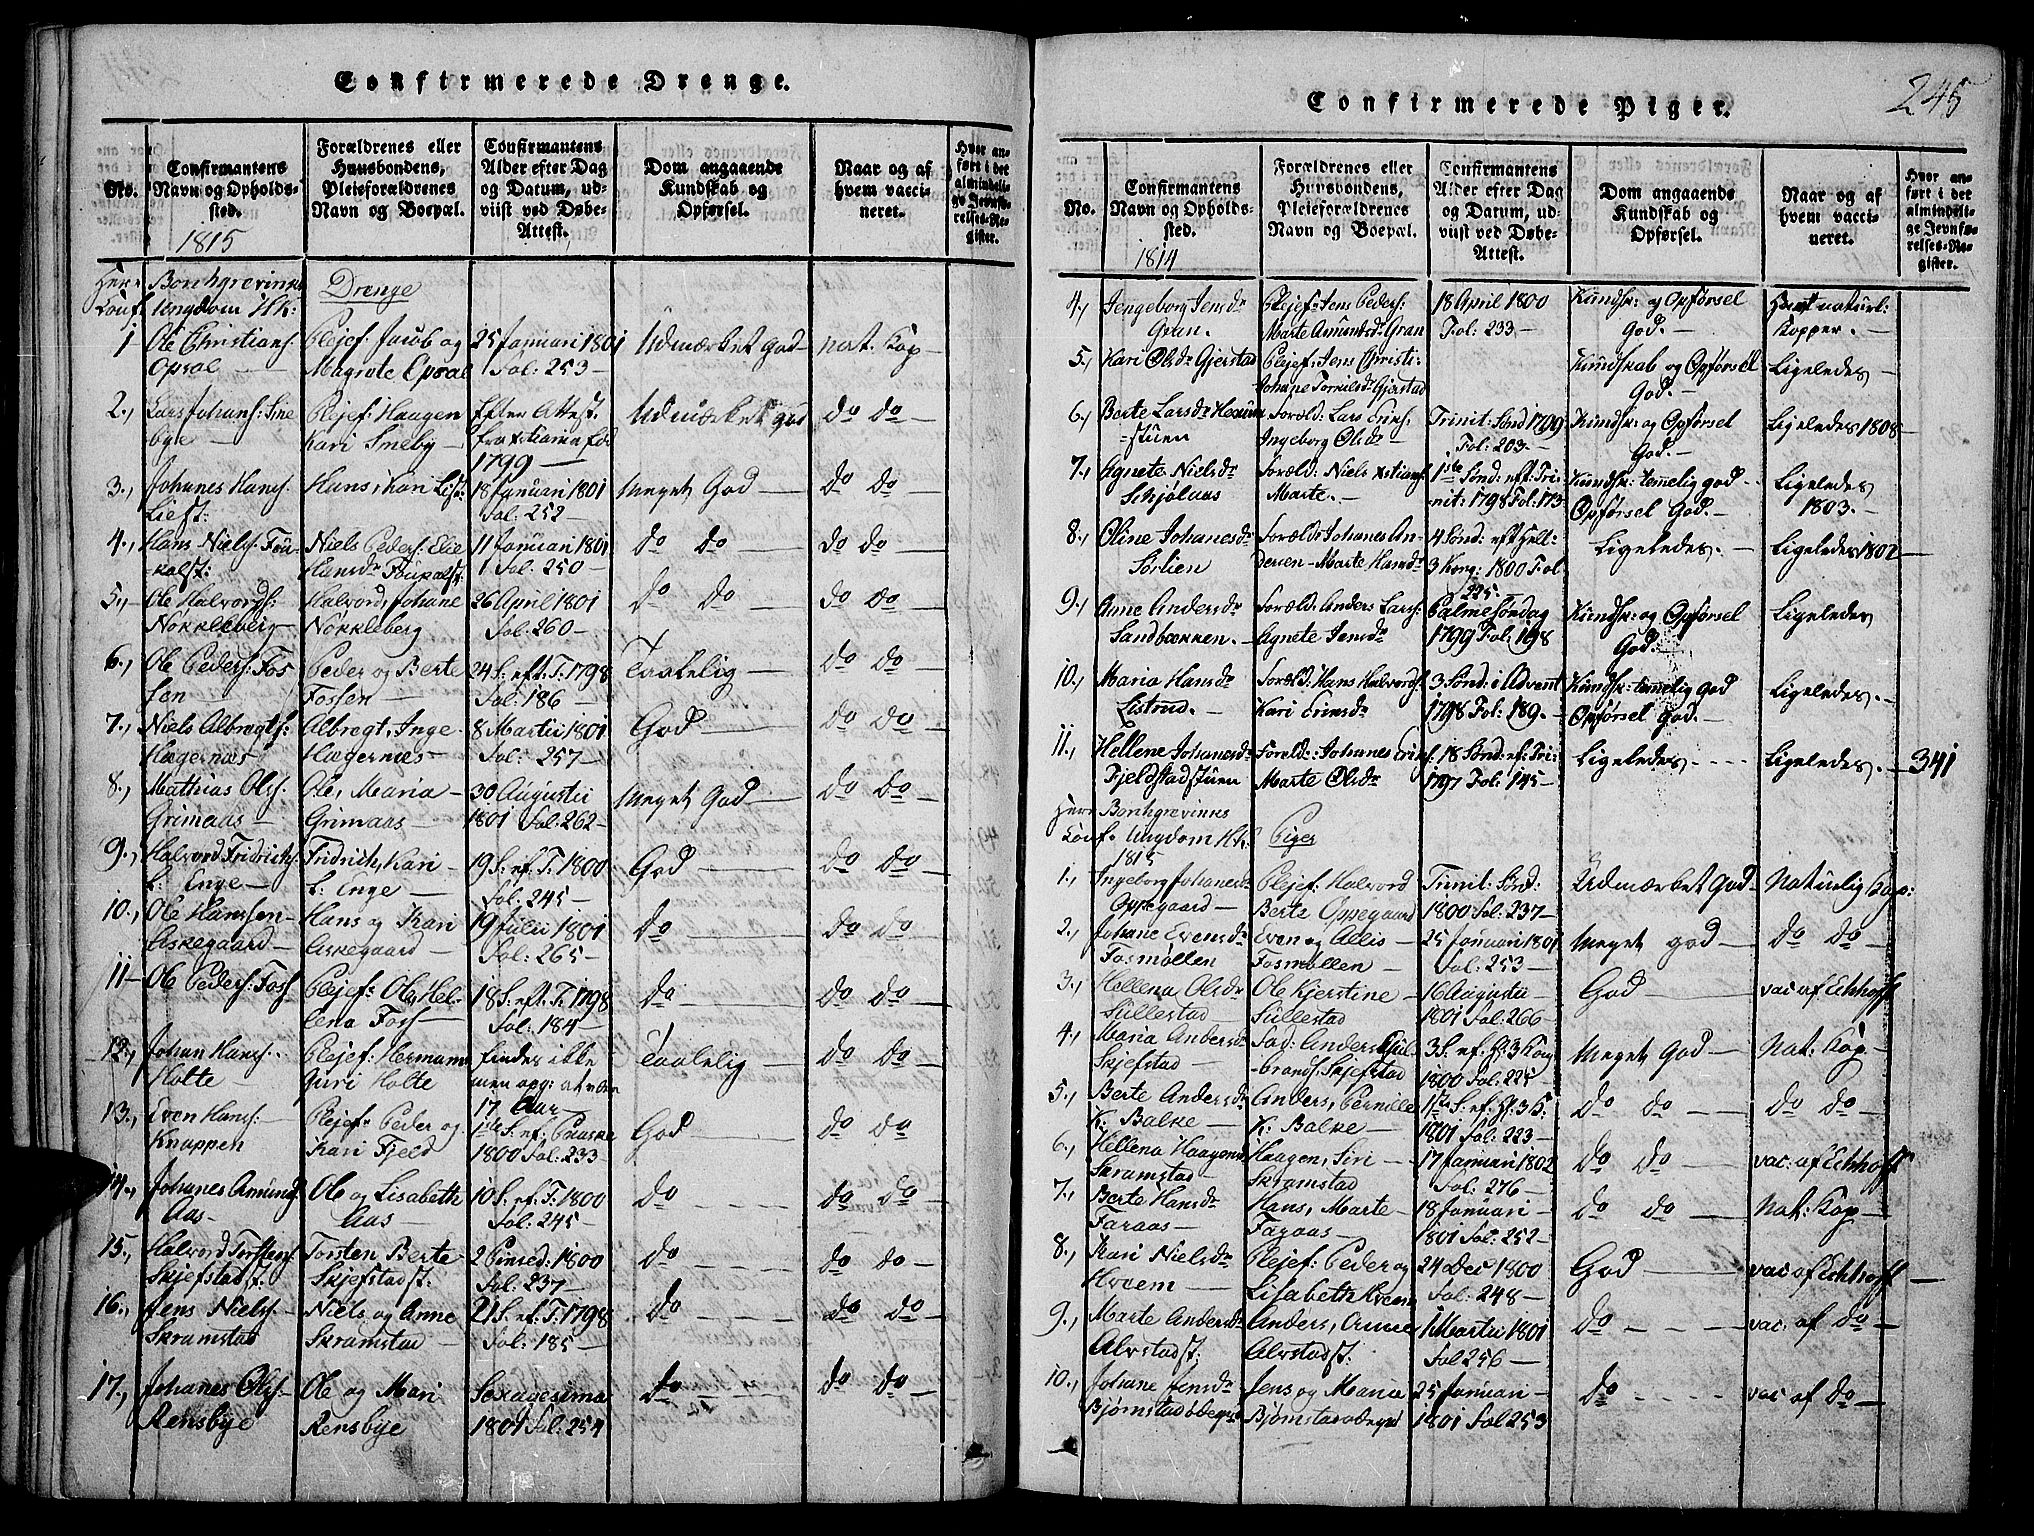 Confirmerede Drenge.
No.
Confirmantens Navn og Opholdssted.
1815
Forældrenes eller Huusbondens, Pleieforældrenes Navn og Boepæl.
Confirmantens Alder efter Dag og Datum, udviist ved Døbe-Attest.
Dom angaaende Kundskab og Opførsel.
Naar og af hvem vaccineret.
Hvor anført i det almindelige Jevnførelses-Register.
Drenge
1 Ole Christians: Plejef: Jacob og 25 Januari 1801 Udmærket God nat. Kop
Opsal Magrete Opsal Fol: 253
2., Lars Johans: Sne Plejef: Haagen Efter Attest. Udmærket god do do
bye Kari Sneby
1799
3., Johanes Hans: Hans, Kari 18 Januari 1801 Meget God do do
Fol: 252
4., Hans Niels: Niels Peders: Elie 11 Januari 1801 do do do do
Hansdr Fol. 250
5., Ole Halvords: Halvord, Johane 26 April 1801 do do do do
Nøkkleberg Nøkkleberg Fol: 260
6., Ole Peders: Fos Peder og Berte 24 S: eft: T: 1798 Taalelig do do
sen Fossen Fol: 186
7., Niels Albregts: Albregt, Inge 8 Martii 1801 God do do
Hægernæs Hægernæs Fol: 257
8., Mathias Ols: Ole, Maria 30 Augustii Meget God do do
Grimaas Grimaas 1801 Fol: 262
9., Halvord Fridrichs: Fridrich, Kari 19 S: ef: T: 1800 God do do
L: Enge L: Enge Fol: 245
10., Ole Hansen Hans og Kari 19 Julii 1801 do do do
Askegaard Askegaard Fol: 265
11 Ole Peders: Foss Plejefr Ole, Hel- 18 S: eft: T: 1798 do do do
lena Foss Fol: 184
12., Johan Hans: Plejef: Herman findes ikke Taalelig do do
Holte Guri Holte men opg: at være
17 Aar
13., Even Hans: Plejefr Peder og 1ste S: ef: Paaske God do do
Knappen Kari Fjeld 1800 Fol: 233
14., Johanes Amunds: Ole og Lisabeth 10 S: ef: T: 1800 do do do
Aas Aas Fol: 245
15., Halvord Torstens: Torsten Berte 2 Pinsed: 1800 do do do
Skjefstadst. Skjefstadst: Fol: 237
16., Jens Niels: Niels og Anne 21 S: ef: T: 1798 do do do
Skramstad Skramstad Fol: 185
17., Johanes Ols: Ole og Mari Sexagesima do do do
Rensbye Rensbye 1801 Fol: 254
Confirmerede Piger.
245
No.
Confirmantens Navn og Opholdssted.
1814
Forældrenes eller Huusbondens, Pleieforældrenes Navn og Boepæl.
Confirmantens Alder efter Dag og Datum, udviist ved Døbe-Attest.
Dom angaaende Kundskab og Opførsel.
Naar og af hvem vaccineret.
Hvor anført i det almindelige Jevnførelses-Register.
4., Jengeborg Jensdr Plejef: Jens Peders: 18 April 1800 Kundsk: og Opførsel naturl:
Gran. Marte Amundsdr Gran Fol: 233 God. Kopper.
5., Kari Olsdr Gjerstad Plejef: Jens Christi Kundskab og Opførsel Ligeledes
Johane Torkilsdr Gjerstad God.
6., Berte Larsdr Foræld: Lars Eriks: Trinit: Sønd 1799 Kundsk: og Opførsel Ligeledes 1808
stuen Ingeborg Olsdr Fol: 203. God.
7., Agnete Nielsdr Foræld: Niels Xstians: 1ste Sønd: eft: Tri- Kundsk: temelig god Ligeledes
Skjølaas Marte. nit: 1798 Fol: 173 Opførsel God. 1803.
8., Oline Johanesdr Foræld: Johanes An- 4 Sønd: eft Hell: Ligeledes. Ligeledes 1802
Sørlien dersen Marte Hansdr 3 Kong: 1800 Fol:
225
9., Anne Andersdr Foræld: Anders Lars: Palme Søndag Kundsk: og Opførsel Ligeledes
Sandbækken. Agnete Jensdr 1799 Fol: 198 God.
10., Maria Hansdr Foræld: Hans Halvords: 3 Sønd: i Advent Kundsk: temelig God Ligeledes.
Listrud. Kari Eriksdr 1798 Fol: 189. Opførsel God.
11., Hellene Johanesdr Foræld: Johanes Eriks: 18 Sønd: ef: Tri: Ligeledes Ligeledes. 341
Fjeldstadstuen Marte Olsdr 1797 Fol: 145
Borchgrevinks
Ungdom Piger
1815
1., Ingeborg Johanesdr Plejef: Halvord Trinit: Sønd: Udmærket God Naturlig Kop:
Oppegaard Berte Oppegaard 1800 Fol: 237
2., Johane Evensdr Even og Allis 25 Januari 1801 Meget god do do
Fosmøllen Fosmøllen Fol: 253
3., Hellena Olsdr Ole Kjerstine 16 Augustu God vac af Eckhoff
Sullestad Sullestad 1801 Fol: 266
4., Maria Andersdr Anders Gul- 3 S: ef: H: 3 Kong Meget God Nat: Kop
Skjefstad brands: Skjefstad 1800 Fol: 225
5., Berte Andersdr Anders, Pernille 1ste S: ef: H: 3 K: do do do do
K: Balke K: Balke 1801 Fol: 223
6., Hellena Haagensdr Haagen, Siri 17 Januari 1802 do do vac: af Eckhoff
Skramstad Skramstad Fol: 276
7., Berte Hansdr Hans, Marte 18 Januari do do Nat: Kop
Faraas Faraas 1801 Fol: 252
8., Kari Nielsdr Plejef: Peder og 24 Dec 1800 God vac af Eckhoff
Hveem Lisabeth Hveem Fol: 248
9., Marte Andersdr Anders, Anne 1 Martii 1801 do vac: af do
Alvstadst: Alvstadst: Fol 256
10., Johane Jensdr Jens og Maria 25 Januari do vac af do
Bjørnstadødegrd Bjørnstadødegrd 1801 Fol 253